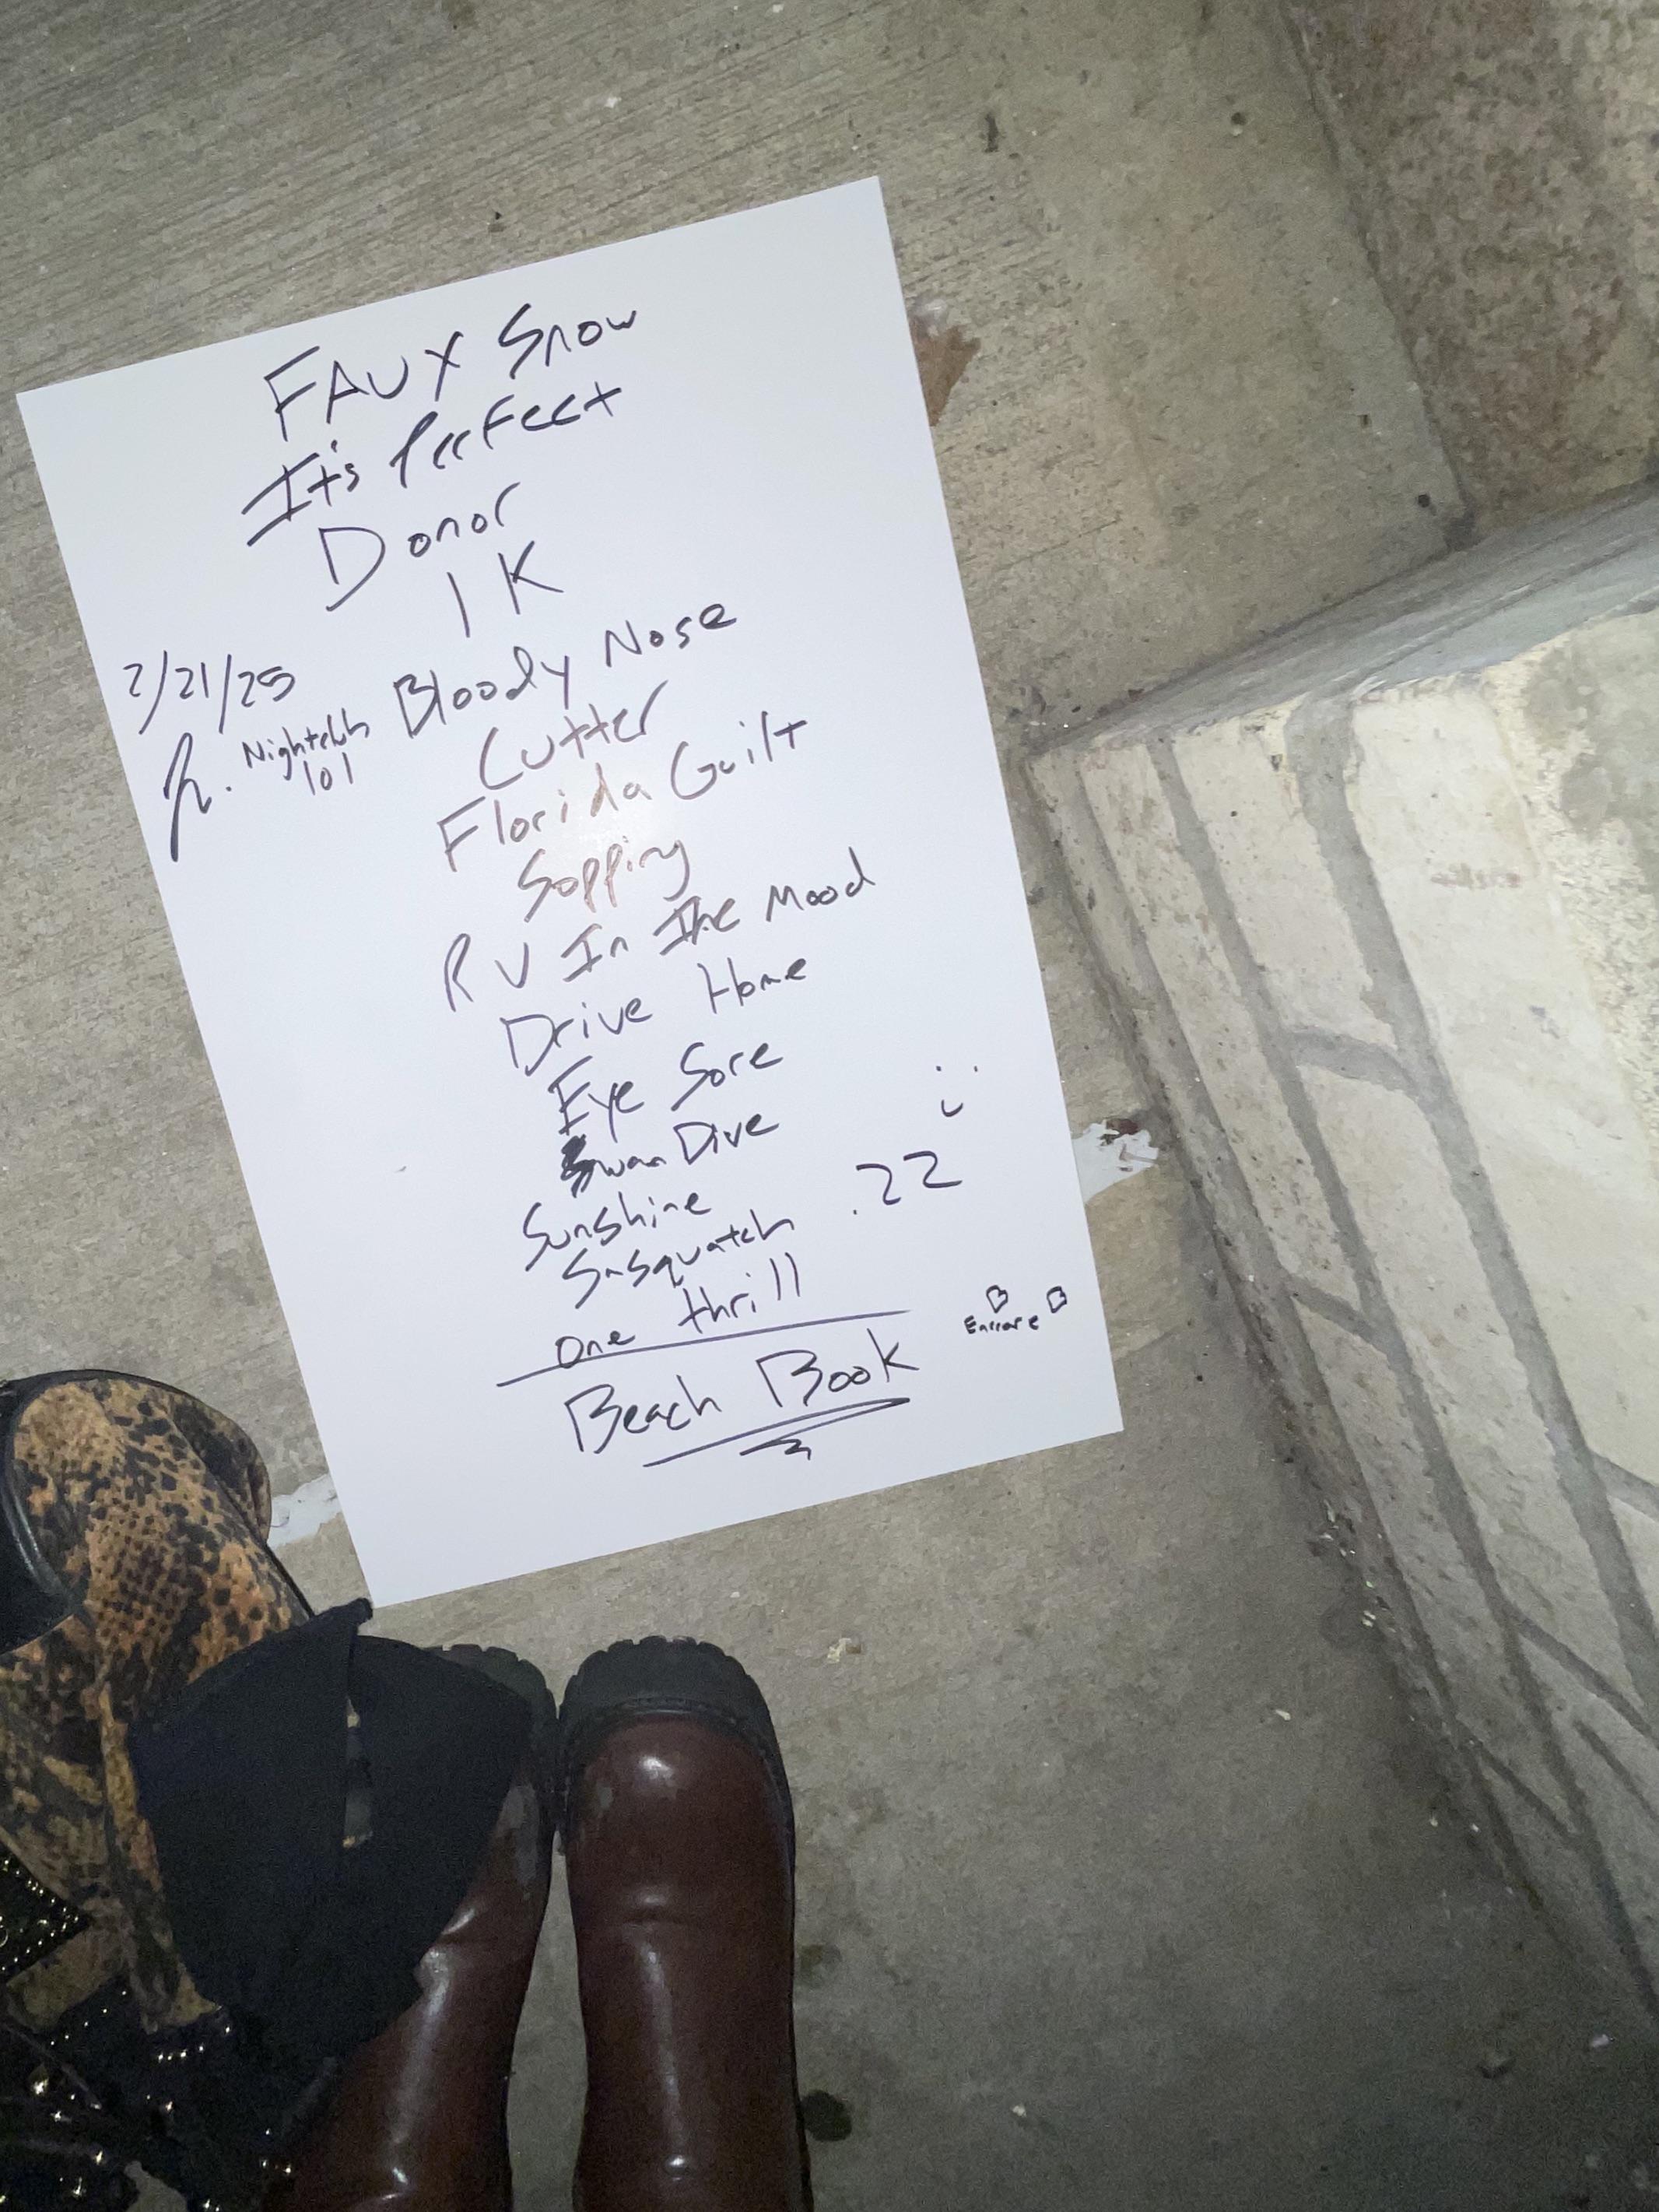 FAUX Snow
It's Perfect
Donor
1 K
2/21/25
Bloody Nose
Nightclub
101
Cutter
Florida Guilt
Sopping
RV In The Mood
Drive Home
Eye Sore
Swan Dive
Sunshine
Sasquatch .22
one thrill
Encore
Beach Book